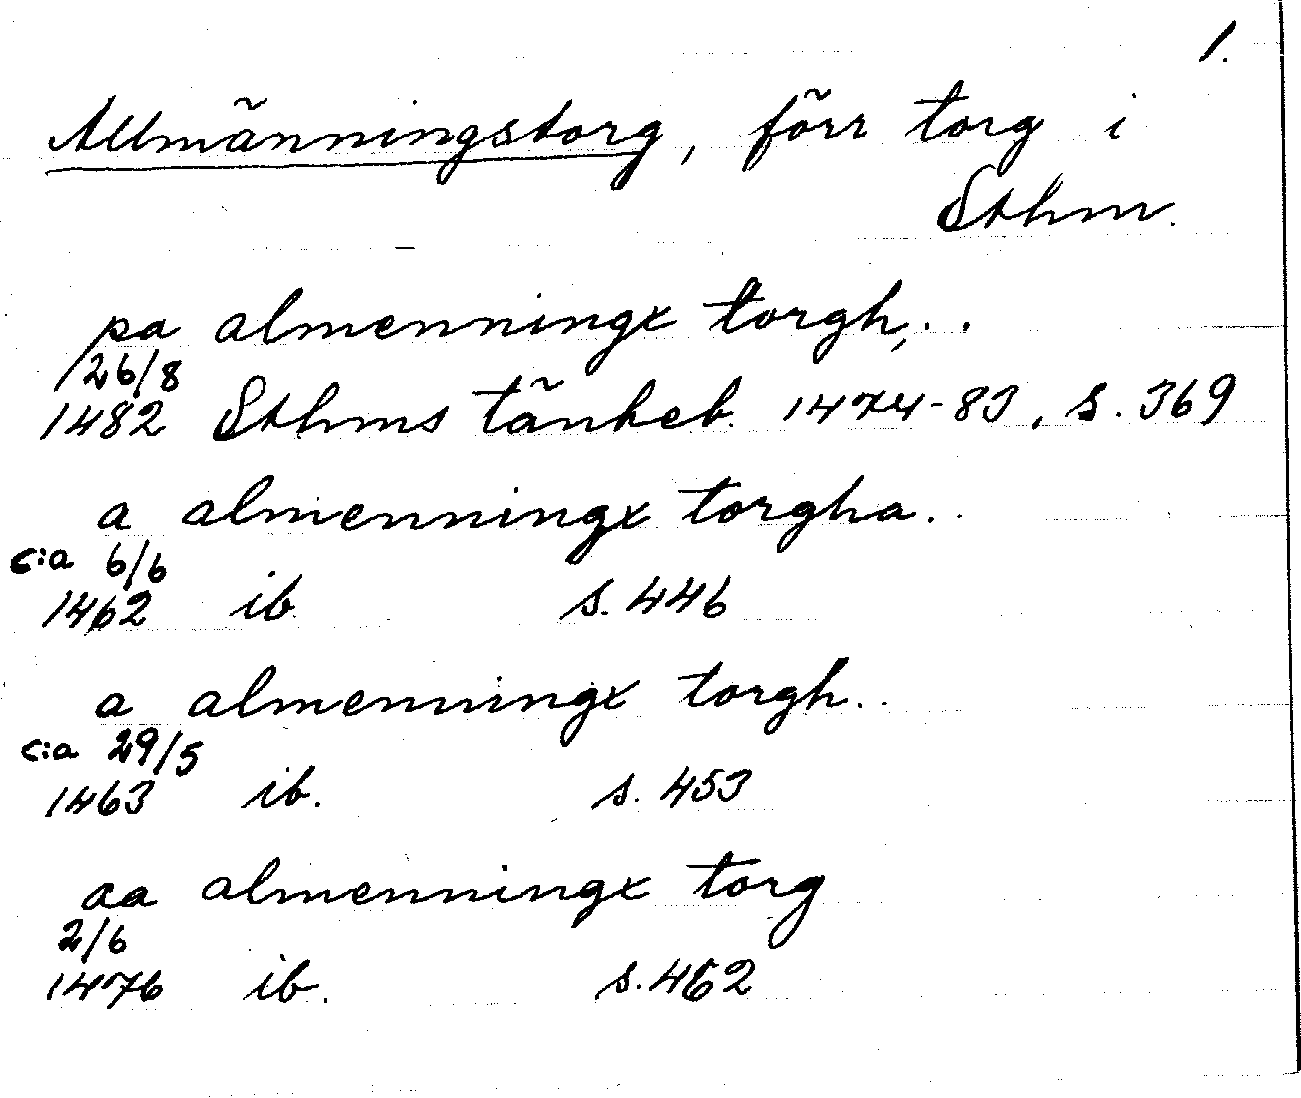 1.
Allmänningstorg, förr torg i
Sthm.
pa almenningx torgh, . .
26/8
1482 Sthms tänkeb. 1474-83, s. 369
a almenningx torgha. .
c:a 6/6
1462 ib. s. 446
a almenningx torgh. .
c:a 29/5
1463 ib. s. 453
aa almenningx torg
2/6
1476 ib. s. 462